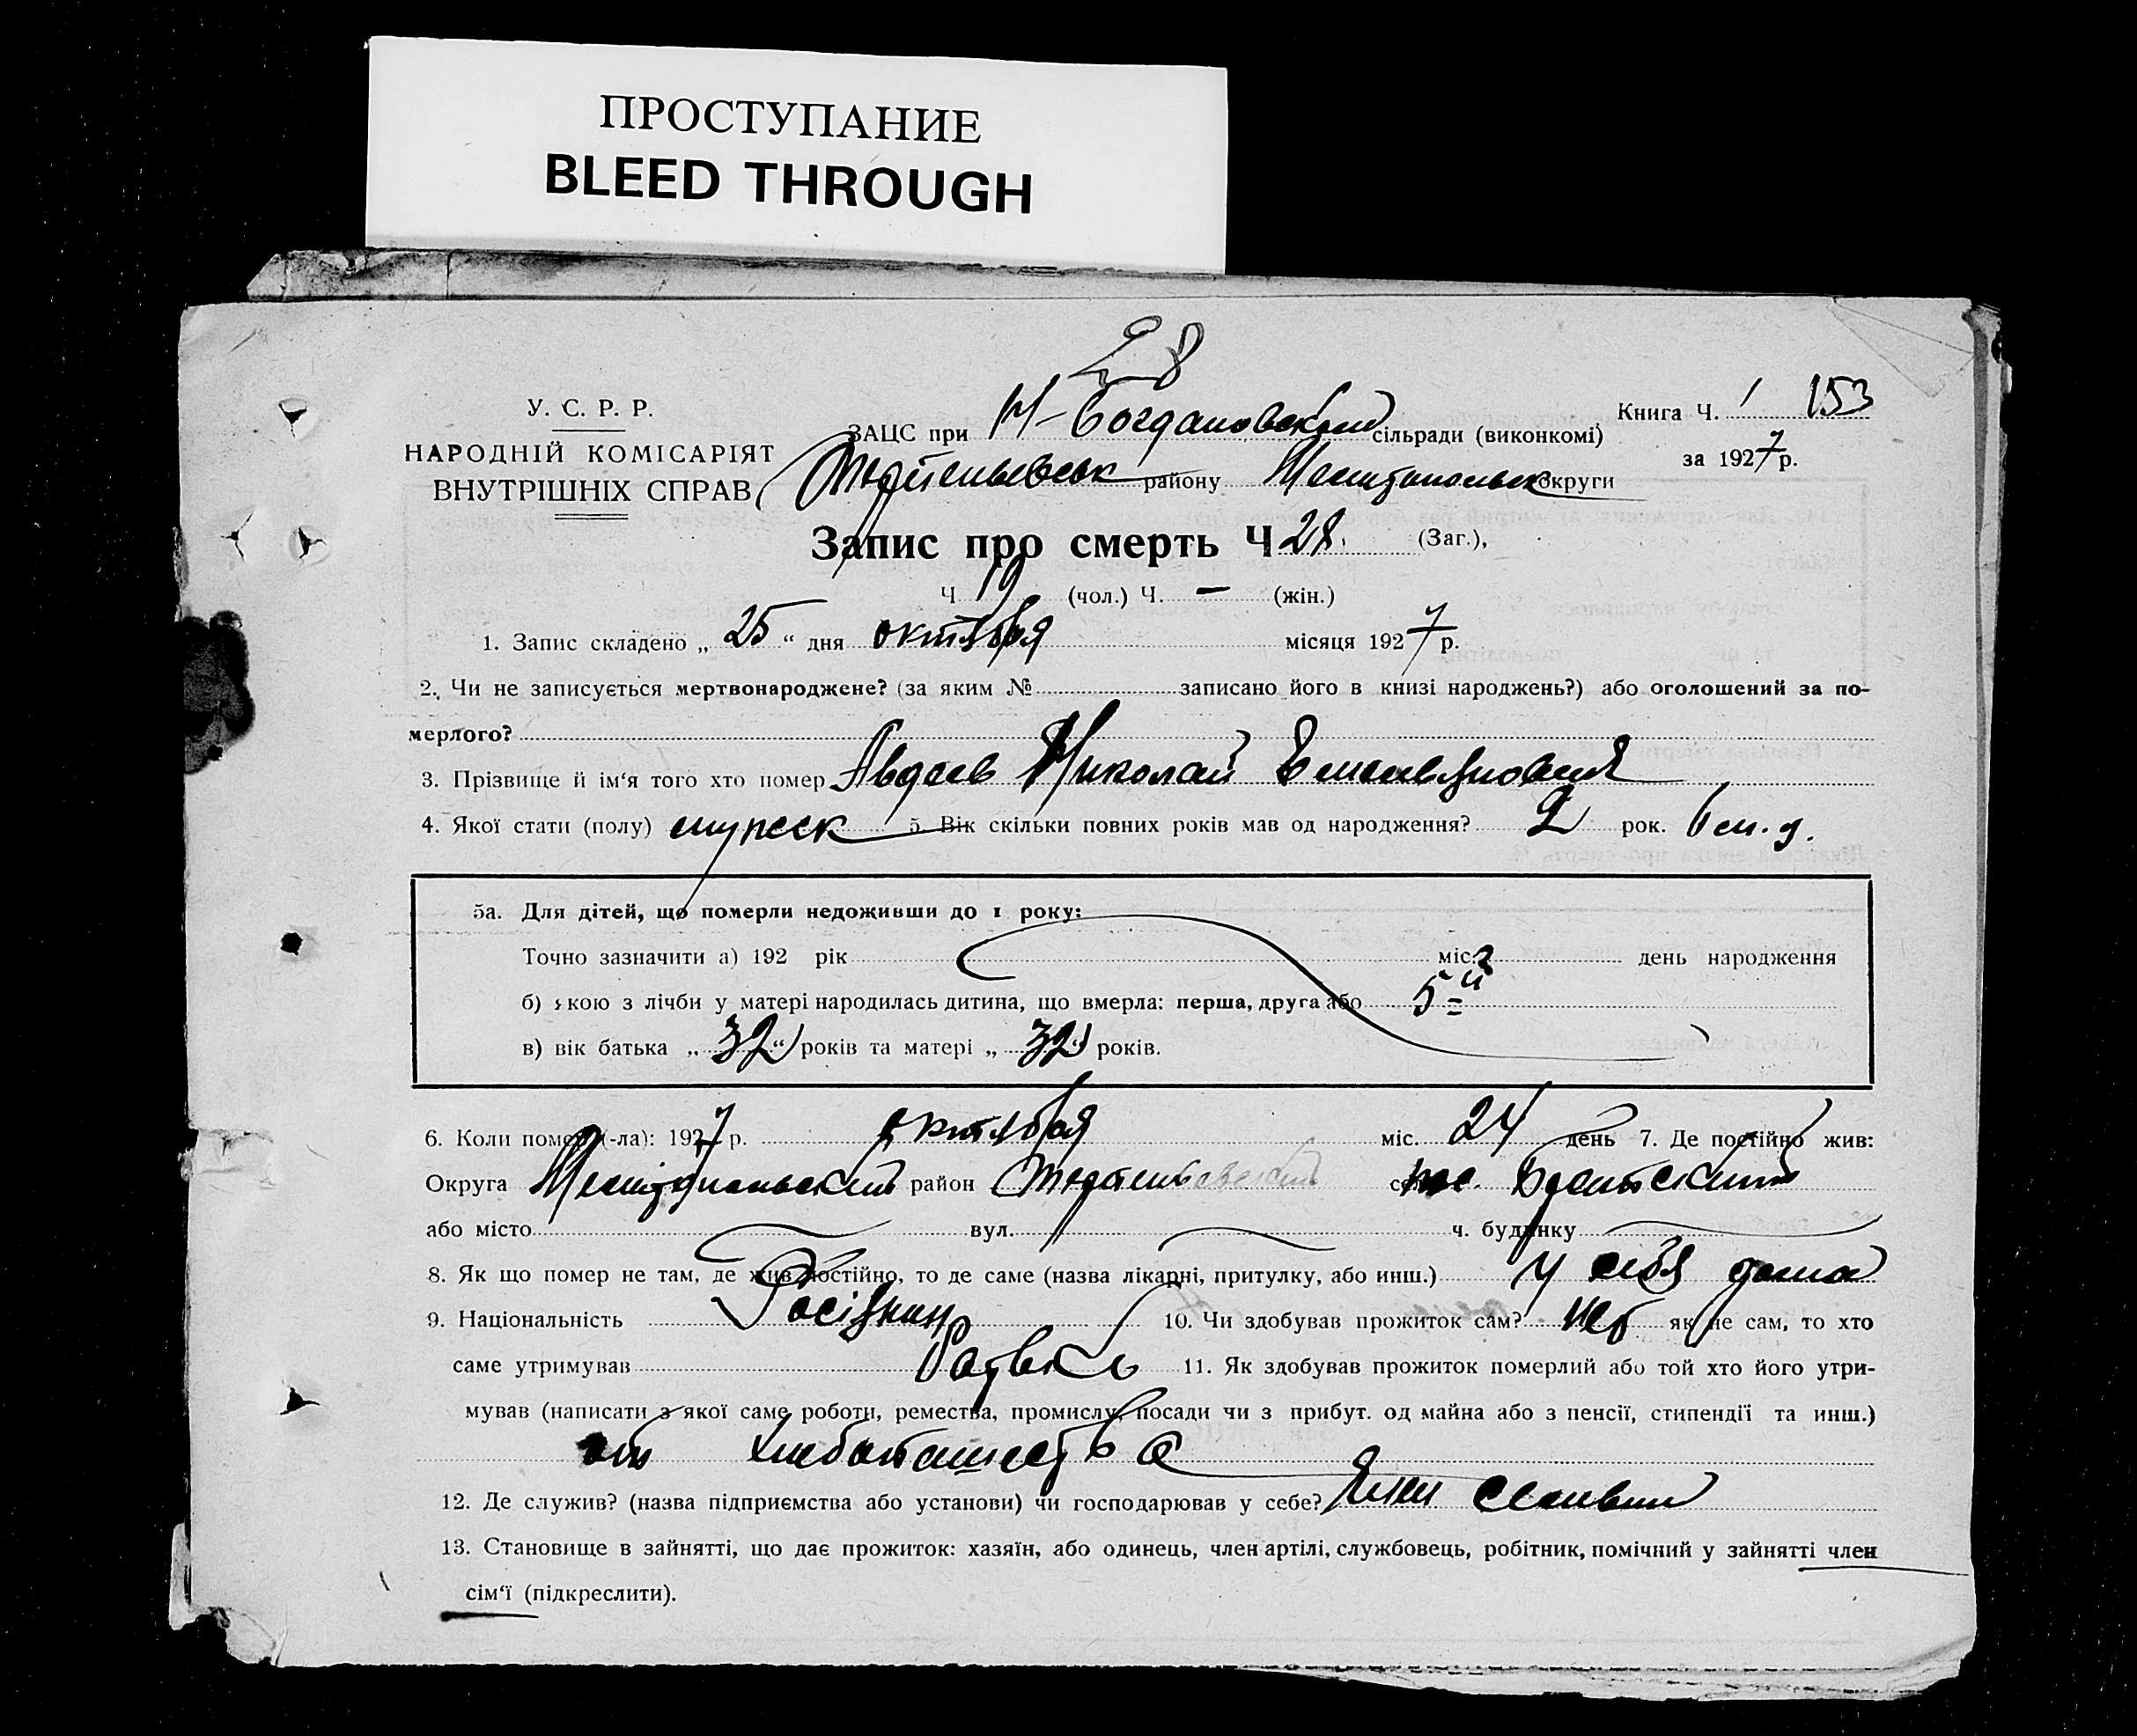 ПРОСТУПАНИЕ
BLEED THROUGH
28
У. С. Р. Р.
НАРОДНІЙ КОМІСАРІЯТ
ВНУТРІШНІХ СПРАВ
Книга Ч. 1 153
за 1927 р.
ЗАЦС при Н-Богдановском сільради (виконкомі)
району Мелитопольск округи
Запис про смерть Ч 28. (Заг.),
Ч. 19 (чол.) Ч. — (жін.)
1. Запис складено „ 25 “ дня октября місяця 1927 р.
2. Чи не записується мертвонароджене? (за яким № записано його в книзі народжень?) або оголошений за по-
мерлого?
3. Прізвище й ім‘я того хто помер Авдеев Николай
4. Якої стати (полу) мужеск 5. Вік скільки повних років мав од народження? 2 рок. 6 м.
5а. Для дітей, що померли недоживши до 1 року:
Точно зазначити а) 192 рік міс. день народження
б) якою з лічби у матері народилась дитина, що вмерла: перша, друга або 5-й
в) вік батька „ 32 “ років та матері „ 32 “ років.
6. Коли помер (-ла): 1927 р. октября міс. 24 день 7. Де постійно жив:
Округа Мелитопольский район село
або місто вул. ч. будинку
8. Як що помер не там, де жив постійно, то де саме (назва лікарні, притулку, або инш.) у себя дома
9. Національність 10. Чи здобував прожиток сам? нет як не сам, то хто
саме утримував 11. Як здобував прожиток померлий або той хто його утри-
мував (написати з якої саме роботи, ремества, промислу, посади чи з прибут. од майна або з пенсії, стипендії та инш.)
от хлебопашества
12. Де служив? (назва підприємства або установи) чи господарював у себе? член семьи
13. Становище в зайнятті, що дає прожиток: хазяїн, або одинець, член артілі, службовець, робітник, помічний у зайнятті член
сім‘ї (підкреслити).